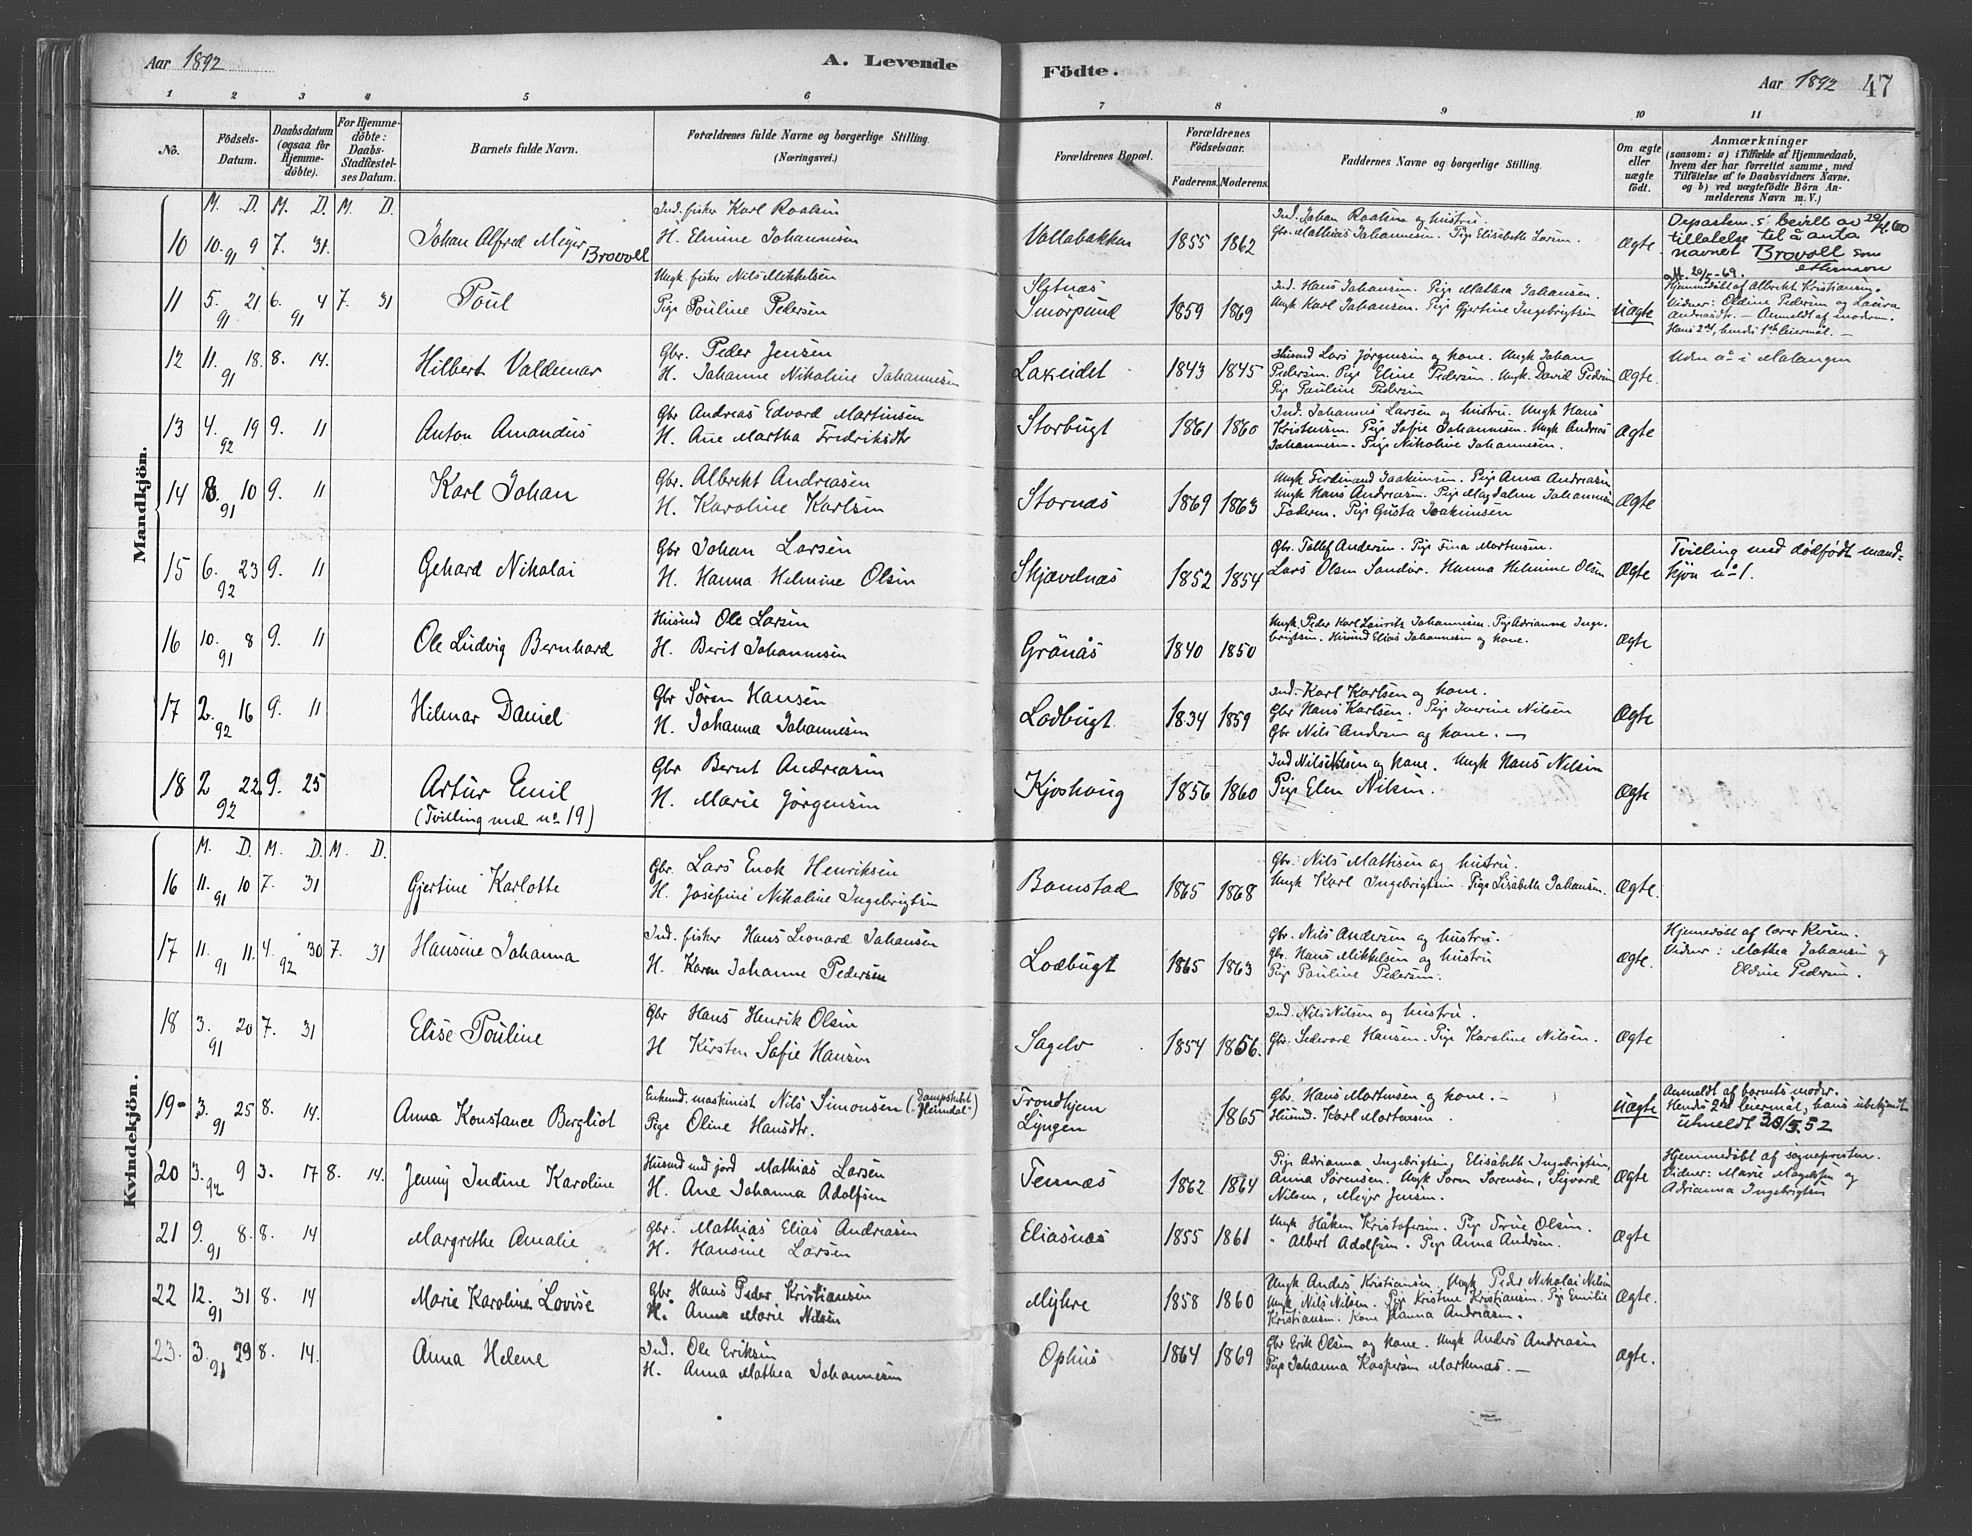 Aar 1892
A. Levende
Födte.
Aar 1892
47
1 2 3 4 5 6 7 8 9 10 11
No.
Födsels-Datum.
Daabsdatum (ogsaa for Hjemme-döbte).
For Hjemme-döbte: Daabs-Stadfæstel-ses Datum.
Barnets fulde Navn.
Forældrenes fulde Navne og borgerlige Stilling. (Næringsvei.)
Forældrenes Bopæl.
Forældrenes Födselsaar.
Faderens. Moderens.
Faddernes Navne og borgerlige Stilling.
Om ægte eller uægte födt.
Anmærkninger
(saasom: a) i Tilfælde af Hjemmedaab,
hvem der har forrettet samme, med
Tilföielse af to Daabsvidners Navne,
og b) ved uægtefödte Börn An-
melderens Navn m. V.)
Mandkjön.
M. D. M. D. M. D.
10 10. 9 91 7. 31. Johan Alfred Meyer Brovoll
Ind. fisker Karl Roaksen
H. Elmine Johannesen
Vollabakken 1855 1862
Ind. Johan Roaksen og hustru.
Gbr. Mathias Johannesen. Pige Elisabeth Larsen.
Ægte.
Departem.s bevill av 29/4.60
tillatelse til å anta
navnet Brovoll som
etternavn
11 5. 21 91 6. 4 91 7. 31 Poul
Ungk. fisker Nils Mikkelsen
Pige Pouline Pedersen
Sletnæs
Smörpund 1859 1869
Ind. Hans Johansen. Pige Mathea Johansen.
Ungk Karl Johansen. Pige Gjertine Ingebrigtsen
Uægte
20/5-69.
Hjemmedöbt af Albrikt Kristiansen.
Vidner: Oldine Pedersen og Laura
Andreasdtr. — Anmeldt af moderen.
Hans 2det, hendes 1ste leiermål. —
12 11. 18. 91 8. 14. Hilbert Valdemar
Gbr. Peder Jensen
H. Johanne Nikoline Johannesen
Laxeidet 1843 1845
Husmd Lars Jørgensen og kone. Ungk Johan
Pedersen. Pige Eline Pedersen. Ungk. David Pedersen
Pige Pauline Pedersen
Ægte.
Uden no i Malangen
13 4. 19 92 9. 11 Anton Amandus
Gbr Andreas Edvard Martinsen
H. Ane Martha Fredriksdtr
Storbugt 1861 1860
Ind. Johannes Larsen og hustru. Ungk Hans
Kristensen. Pige Sofie Johannesen. Ungk Andreas
Johannesen. Pige Nikoline Johannesen.
Ægte
14 8. 10 91 9. 11 Karl Johan
Gbr. Albrikt Andreasen
H. Karoline Karlsen
Stornæs 1869 1863
Ungk Ferdinand Joakimsen. Pige Anna Andreasen
Ungk Hans Andreasen. Pige Magdalene Johannesen
Faderen. Pige Gusta Joakimsen
Ægte
15 6. 23 92 9. 11 Gehard Nikolai
Gbr Johan Larsen
H. Hanna Helmine Olsen
Skjævelnæs 1852 1854
Gbr. Tollef Andersen. Pige Fina Mortensen.
Lars Olsen Sandör. Hanna Helmine Olsen
Ægte
Tvilling med dødfödt mand-
kjön no 1.
16 10. 8 91 9. 11 Ole Ludvig Bernhard
Husmd Ole Larsen
H. Berit Johannesen
Grönås 1840 1850
Ungk. Peder Karl Lauritz Johannesen. Pige Adrianna Inge-
brigtsen. Husmd Elias Johannesen og kone.
Ægte
17 2. 16 92 9. 11 Hilmar Daniel
Gbr Sören Hansen
H. Johanna Johannesen
Lodbugt 1834 1859
Ind. Karl Karlsen og kone.
Gbr Hans Karlsen. Pige Iverine Nilsen
Gbr Nils Andersen og kone. —
Ægte
18 2 22 92 9. 25 Artur Emil
(Tvilling med no 19)
Gbr Bernt Andreasen
H. Marie Jörgensen
Kjoshaug 1856 1860
Ind Nils Nilsen og kone. Ungk Hans Nilsen
Pige Elen Nilsen.
Ægte
Kvindekjön.
M. D. M. D. M. D.
16 11. 10 91 7. 31 Gjertine Karlotte
Gbr. Lars Enok Henriksen
H. Josefine Nikoline Ingebrigtsen
Bomstad 1865 1868
Gbr. Nils Mattisen og hustru.
Ungk Karl Ingebrigtsen. Pige Lisabeth Johansen.
Ægte.
17 11. 11. 91 4. 30 92 7. 31 Hansine Johanna
Ind. fisker Hans Leonard Johansen
H. Karen Johanne Pedersen
Lodbugt 1865 1863
Gbr. Nils Andersen og hustru.
Gbr. Hans Mikkelsen og hustru
Pige Pauline Pedersen.
Ægte.
Hjemmedöbt af lærer Kvien.
Vidner: Mathea Johansen og
Oldine Pedersen.
18 3. 20 91 7. 31 Elise Pouline
Gbr Hans Henrik Olsen
H Kirsten Sofie Hansen
Sagelv 1854 1856.
Ind. Nils Nilsen og hustru.
Gbr. Sedevard Hansen. Pige Karoline Nilsen.
Ægte
19 3. 25 91 8. 14. Anna Konstance Bergliot
Enkemd. maskinist Nils Simonsen (Dampskibet "Heimdal")
Pige Oline Hansdtr.
Trondhjem
Lyngen 1865
Gbr. Hans Mortensen og kone. —
Husmd. Karl Mortensen.
Uægte
Anmeldt af barnets moder.
Hendes 2det leiermål, hans ubekjendt
utmeldt 30/5.52
20 3. 9 92 3. 17 8. 14. Jenny Indine Karoline
Husmd med jord Mathias Larsen
H. Ane Johanna Adolfsen
Tennæs 1862 1864
Pige Adrianna Ingebrigtsen, Elisabeth Ingebrigtsen,
Anna Sørensen. Ungk Søren Sørensen, Sigvard
Nilsen, Meyer Jensen.
Ægte
Hjemmedöbt af sognepresten.
Vidner: Marie Magelsen og
Adrianna Ingebrigtsen
21 9. 8. 91 8. 14 Margrethe Amalie
Gbr. Mathias Elias Andreasen
H. Hansine Larsen
Eliasnæs 1855 1861
Ungk Håken Kristofersen. Pige Trine Olsen.
" Albert Adolfsen. Pige Anna Andersen.
Ægte
22 12. 31 91 8. 14 Marie Karoline Lovise
Gbr. Hans Peder Kristiansen
H. Anne Marie Nilsen
Myhre 1858 1860
Ungk Anders Kristiansen. Ungk Peder Nikolai Nilsen
Ungk. Nils Nilsen. Pige Kristine Kristiansen. Pige Emilie
Kristiansen. Kone Hanna Andreasen.
Ægte.
23. 3. 29 91 8. 14. Anna Helene
Ind. Ole Eriksen
H. Anna Mathea Johannesen
Ophus 1864 1869
Gbr Erik Olsen og kone. Ungk Anders Andreasen
Pige Johanna Kaspersen Markenæs. —
Ægte.